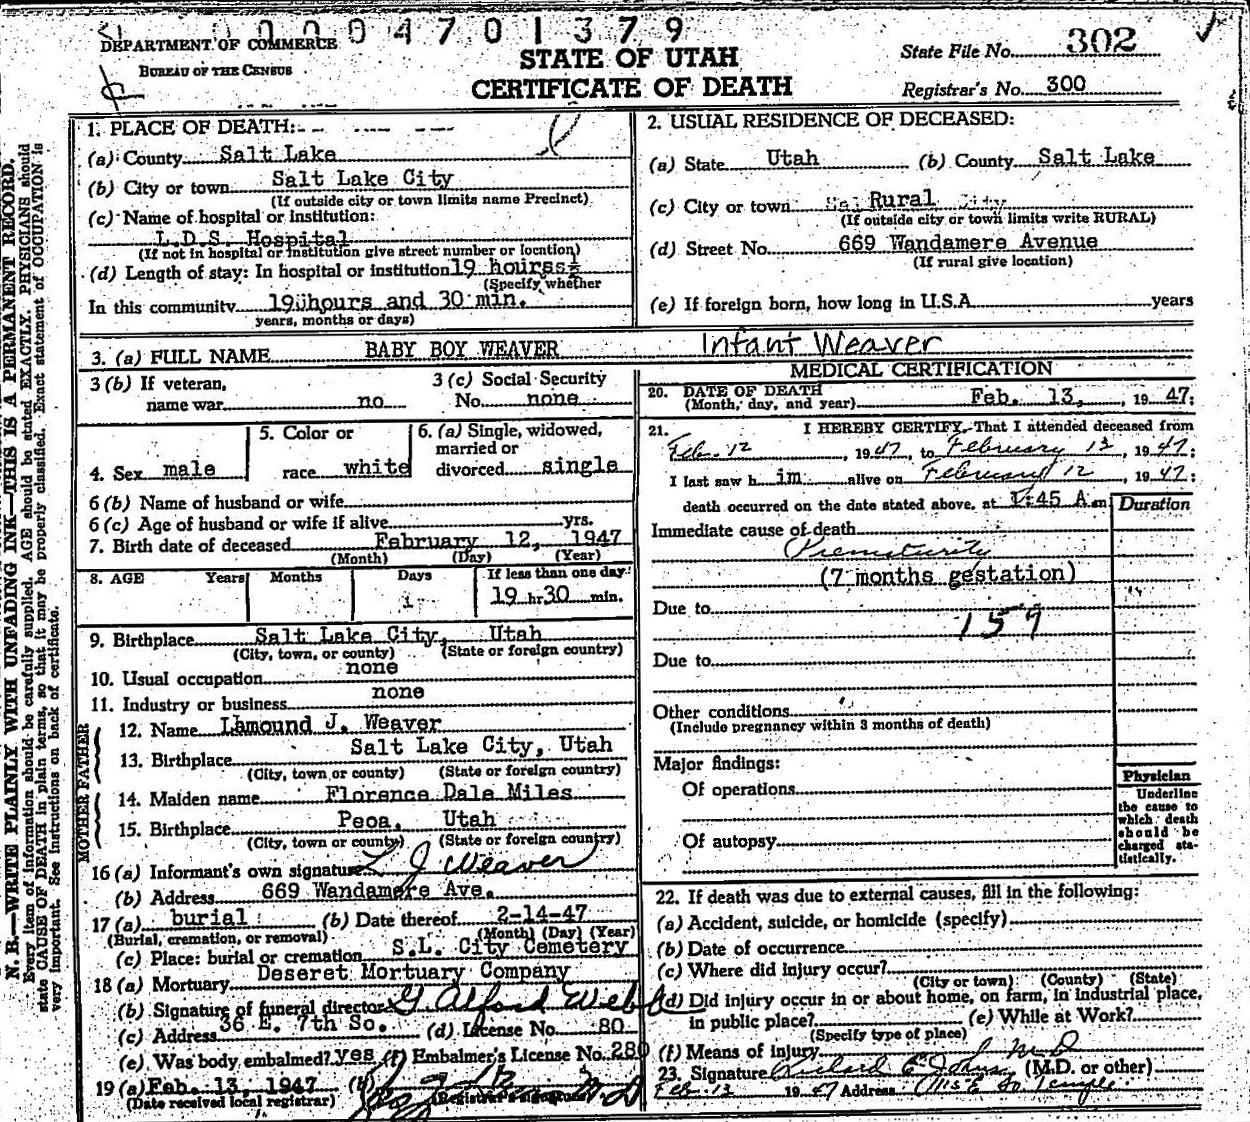 0004701379
DEPARTMENT OF COMMERCE
BUREAU OF THE CENSUS
STATE OF UTAH
CERTIFICATE OF DEATH
State File No. 302
Registrar's No. 300
N. B.—WRITE PLAINLY WITH UNFADING INK—THIS IS A PERMANENT RECORD.
Every item of information should be carefully supplied. AGE should be stated EXACTLY. PHYSICIANS should
state CAUSE OF DEATH in plain terms, so that it may be properly classified. Exact statement of OCCUPATION is
very important. See instructions on back of certificate.
1. PLACE OF DEATH:
(a) County Salt Lake
(b) City or town Salt Lake City
(If outside city or town limits name Precinct)
(c) Name of hospital or institution:
L.D.S. Hospital
(If not in hospital or institution give street number or location)
(d) Length of stay: In hospital or institution 19 hours
(Specify whether
In this community 19 hours and 30 min.
years, months or days)
2. USUAL RESIDENCE OF DECEASED:
(a) State Utah (b) County Salt Lake
(c) City or town Rural
(If outside city or town limits write RURAL)
(d) Street No. 669 Wandamere Avenue
(If rural give location)
(e) If foreign born, how long in U.S.A. years
3. (a) FULL NAME BABY BOY WEAVER Infant Weaver
3 (b) If veteran,
name war no
3 (c) Social Security
No. none
4. Sex male
5. Color or
race white
6. (a) Single, widowed,
married or
divorced single
6 (b) Name of husband or wife
6 (c) Age of husband or wife if alive yrs.
7. Birth date of deceased February 12, 1947
(Month) (Day) (Year)
8. AGE Years Months Days If less than one day:
1 19 hr 30 min.
9. Birthplace Salt Lake City, Utah
(City, town, or county) (State or foreign country)
10. Usual occupation none
11. Industry or business none
FATHER
12. Name Lamound J. Weaver
13. Birthplace Salt Lake City, Utah
(City, town or county) (State or foreign country)
MOTHER
14. Maiden name Florence Dale Miles
15. Birthplace Peoa, Utah
(City, town or county) (State or foreign country)
16 (a) Informant's own signature L J Weaver
(b) Address 669 Wandamere Ave.
17 (a) burial (b) Date thereof 2-14-47
(Burial, cremation, or removal) (Month) (Day) (Year)
(c) Place: burial or cremation S.L. City Cemetery
18 (a) Mortuary Deseret Mortuary Company
(b) Signature of funeral director G. Alford Webb
(c) Address 36 E. 7th So. (d) License No. 80
(e) Was body embalmed? yes (f) Embalmer's License No. 280
19 (a) Feb. 13, 1947 (b) M.D
(Date received local registrar) (Registrar's signature)
MEDICAL CERTIFICATION
20. DATE OF DEATH
(Month, day, and year) Feb. 13, 1947;
21. I HEREBY CERTIFY, That I attended deceased from
Feb. 12, 1947, to February 13, 1947;
I last saw him alive on February 12, 1947;
death occurred on the date stated above, at 1:45 A m
Duration
Immediate cause of death
Prematurity
(7 months gestation)
Due to
159
Due to
Other conditions
(Include pregnancy within 3 months of death)
Major findings:
Of operations
Of autopsy
Physician
Underline
the cause to
which death
should be
charged sta-
tistically.
22. If death was due to external causes, fill in the following:
(a) Accident, suicide, or homicide (specify)
(b) Date of occurrence
(c) Where did injury occur?
(City or town) (County) (State)
(d) Did injury occur in or about home, on farm, in industrial place,
in public place? (e) While at Work?
(Specify type of place)
(f) Means of injury
23. Signature Richard E Johnson M D (M.D. or other)
Feb 13 1947 Address 1115 E So. Temple